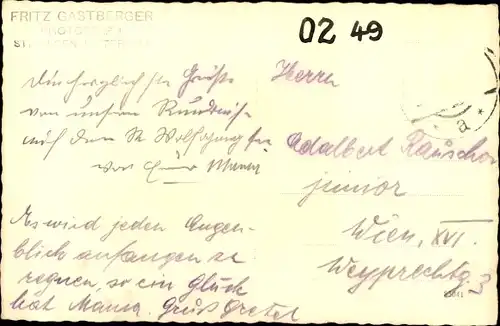 FRITZ GASTBERGER
02 49
Die herzlichsten Grüße
von unserer Rundreise
auf dem St. Wolfgangsee
von Eurer Mama
Es wird jeden Augen-
blick anfangen zu
regnen, so ein Glück
hat Mama. Gruß Gretel
Herrn
Adalbert Rauscher
junior
Wien, XVI.
Weyprechtg. 3
a